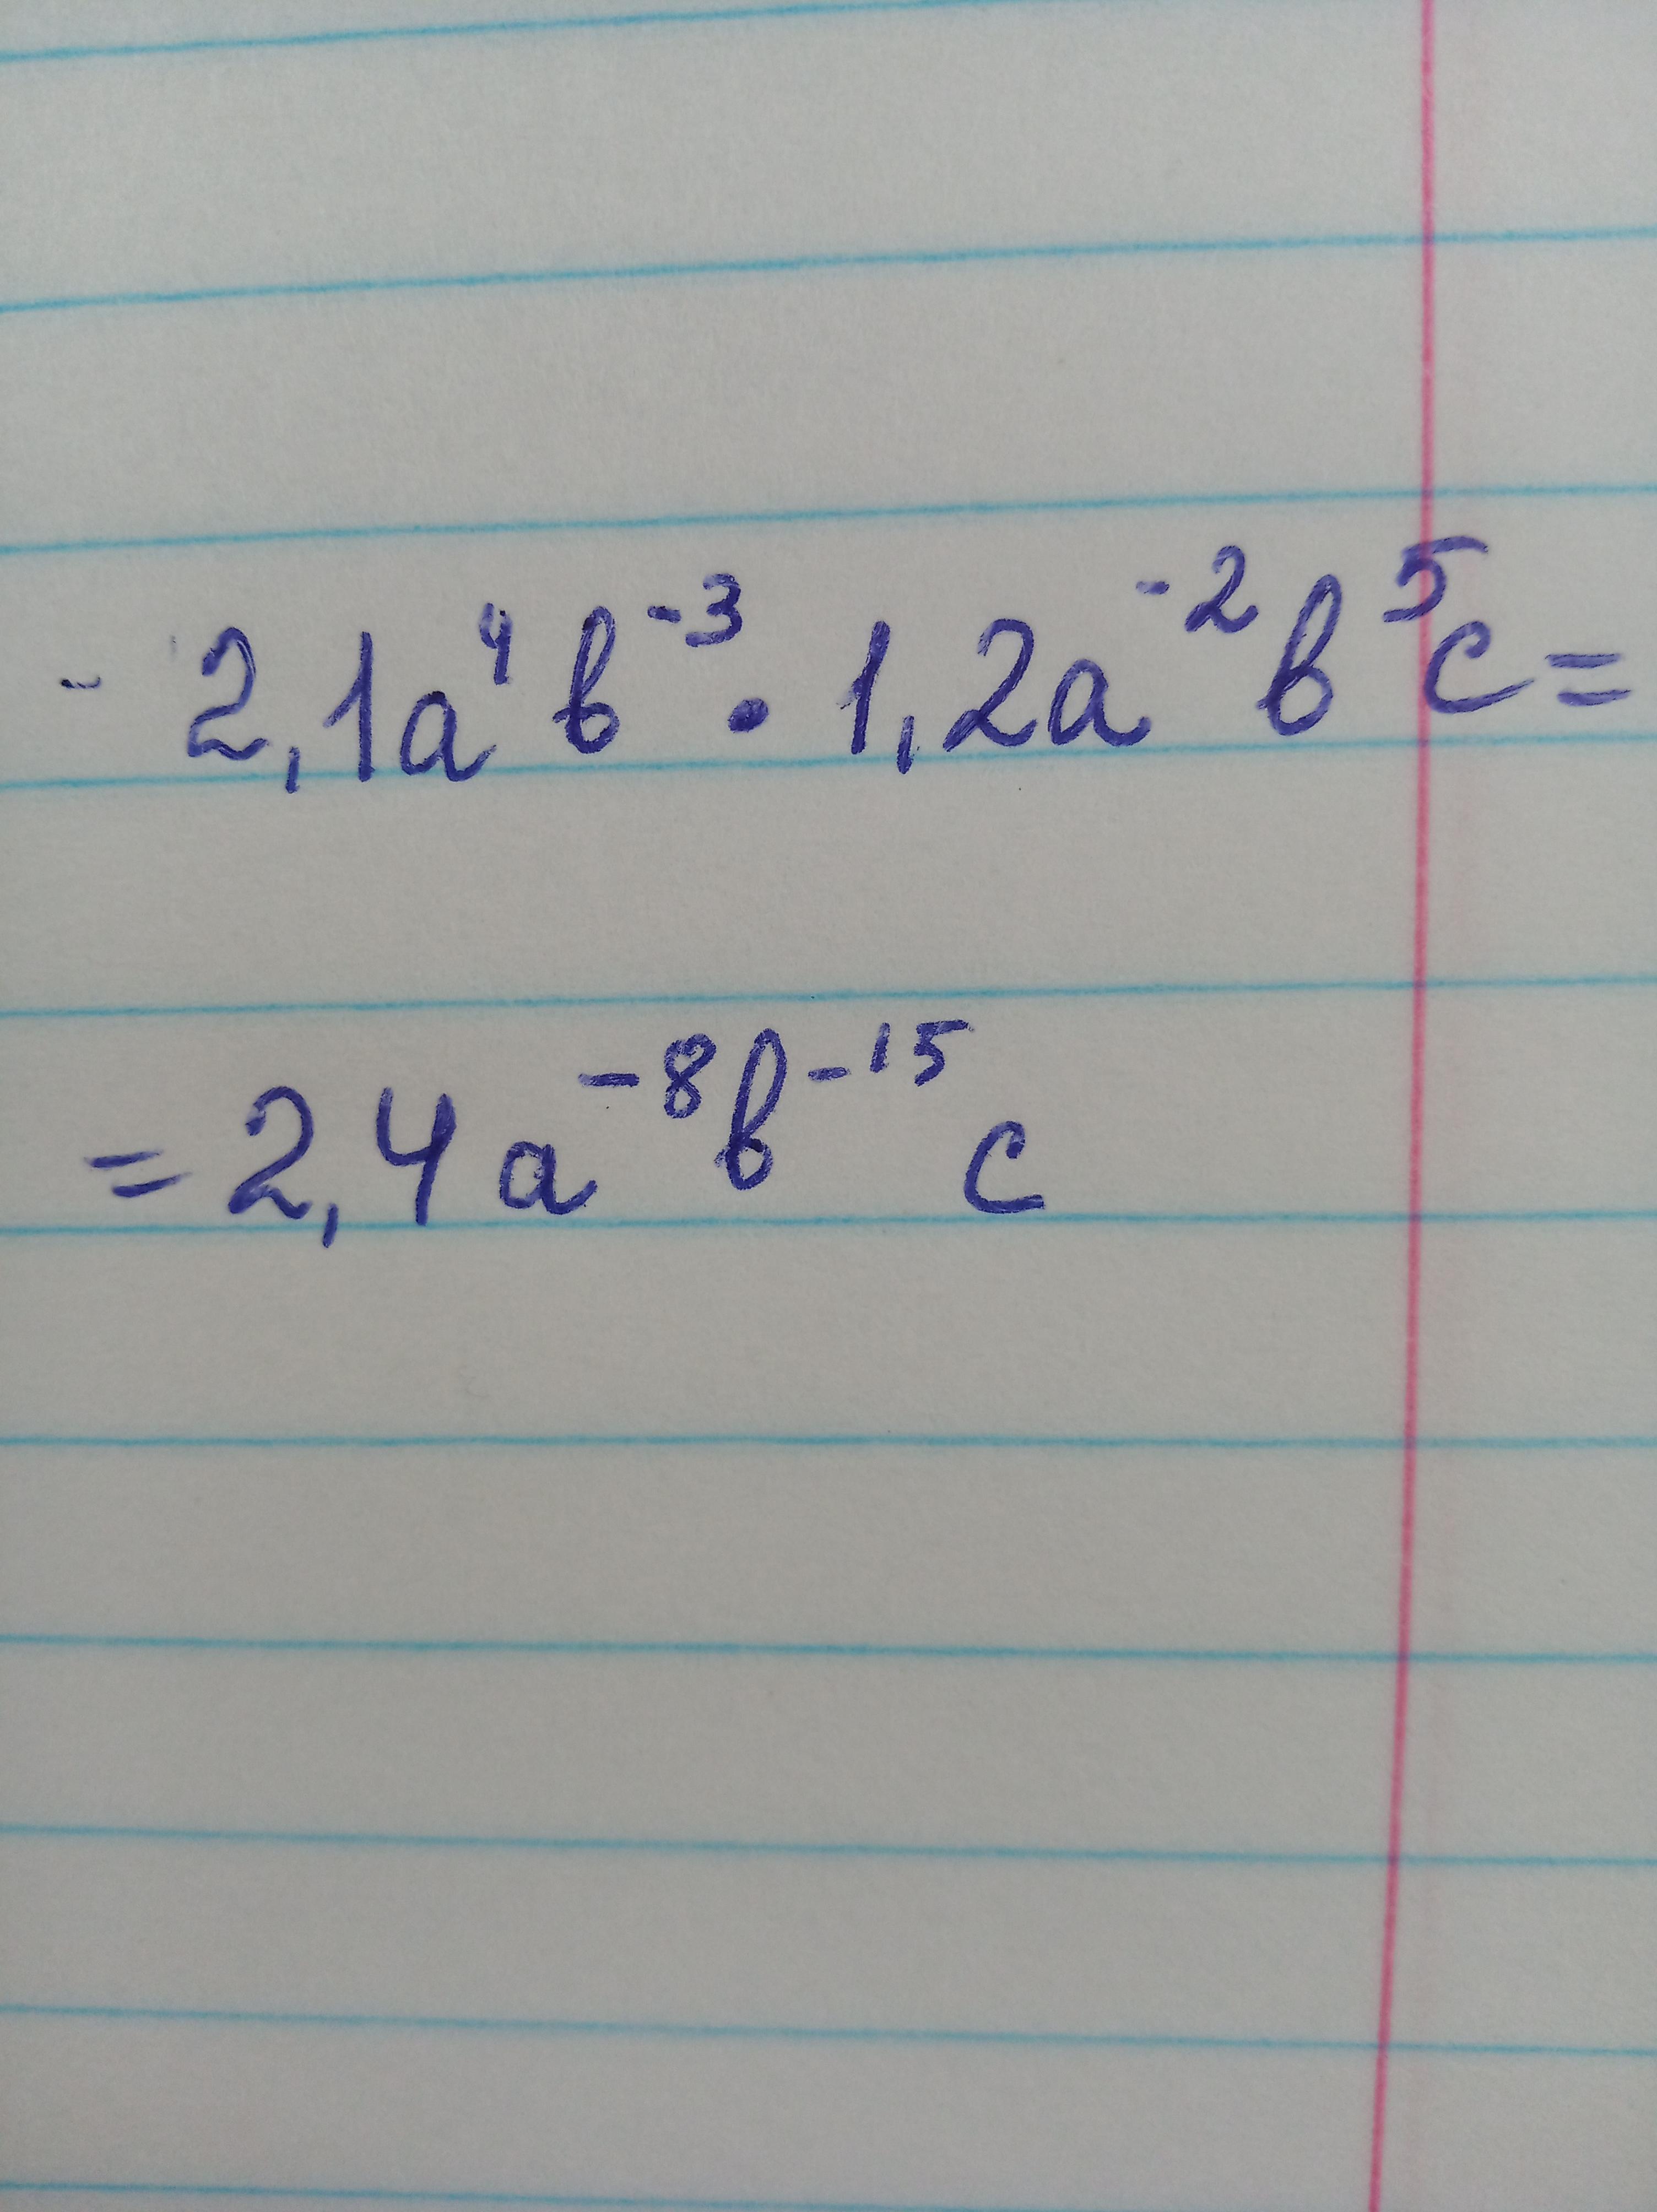 - 2,1a⁴b⁻³ · 1,2a⁻²b⁵c =
= 2,4a⁻⁸b⁻¹⁵c